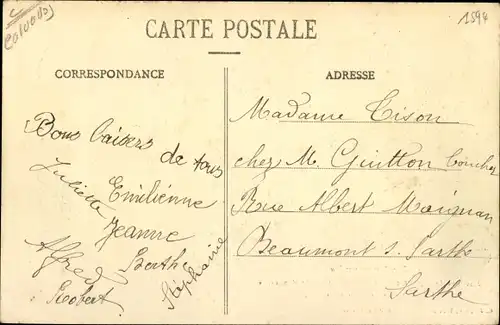 Calvados
1594
CARTE POSTALE
CORRESPONDANCE
Bons baisers de tous
Juliette
Emilienne
Jeanne
Alfred
Berthe
Stéphanie
Robert
ADRESSE
Madame Tison
chez M. Guitton
Rue Albert Maignan
Beaumont s. Sarthe
Sarthe